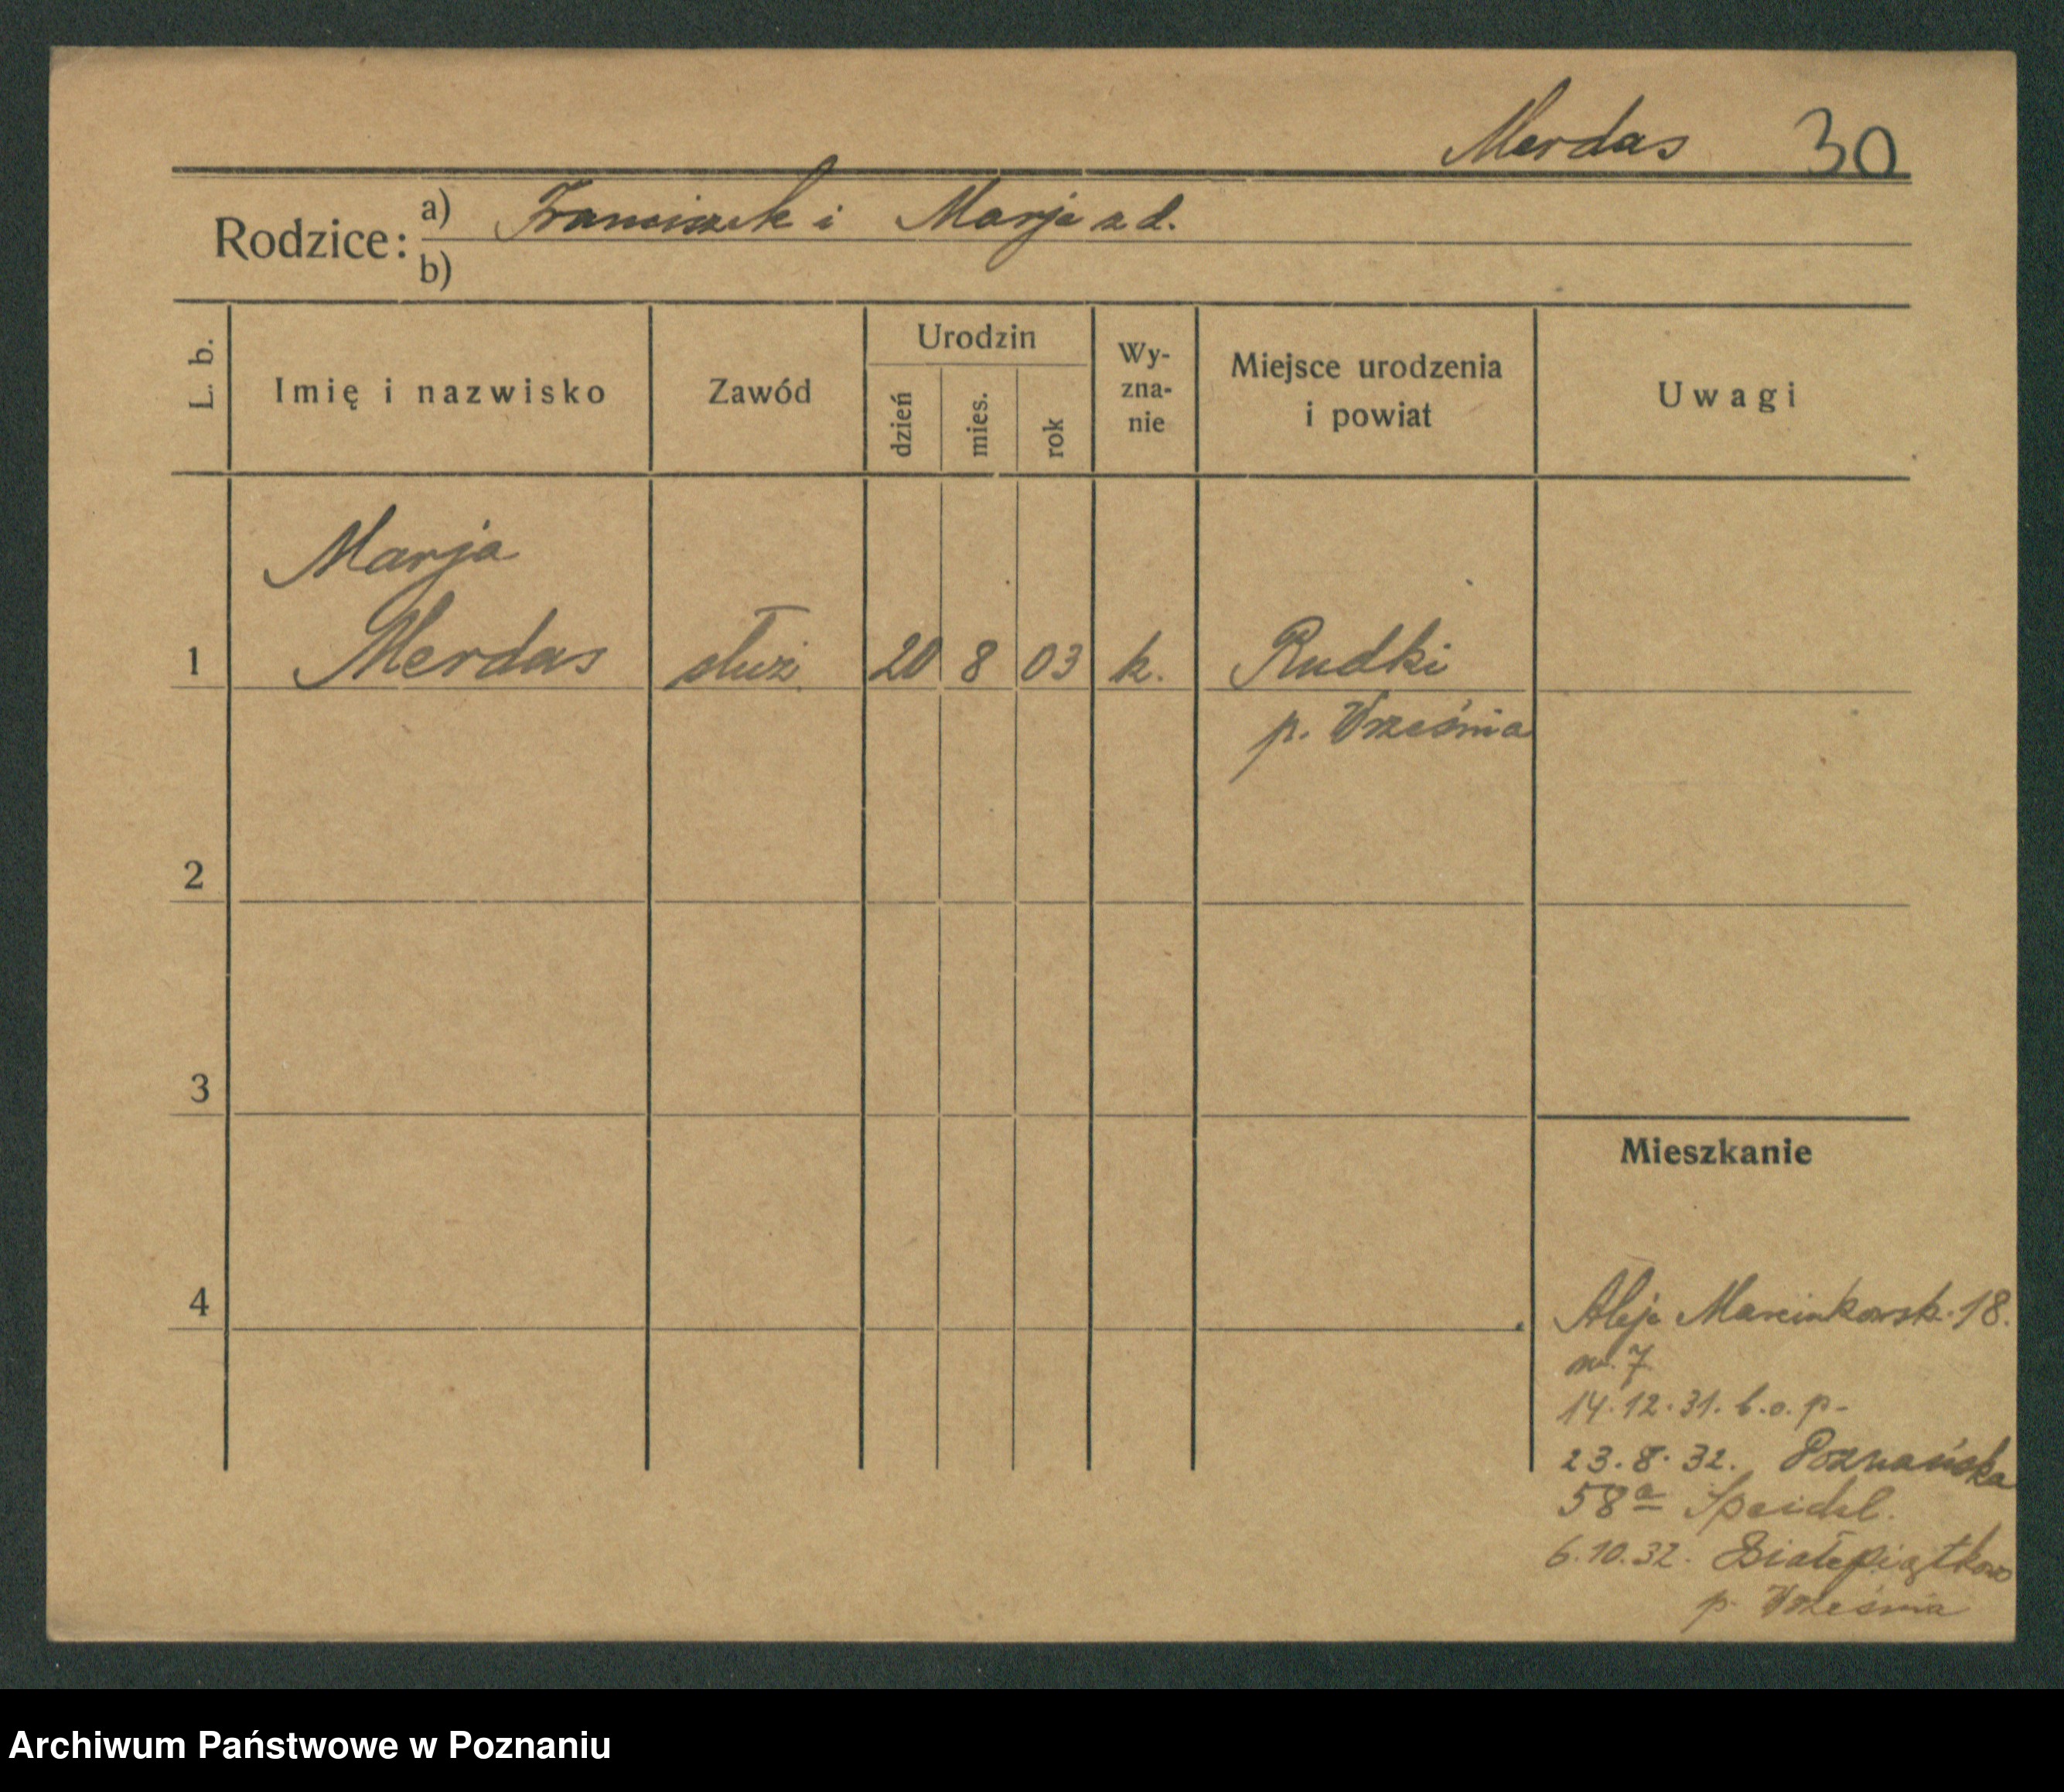 Merdas 30
Rodzice: a) Franciszek i Marja z d.
b)
L. b. Imię i nazwisko Zawód Urodzin dzień mies. rok Wy-zna-nie Miejsce urodzenia i powiat Uwagi
Marja
1 Merdas służ. 20 8 03 k. Rudki
p. Września
2
3
Mieszkanie
4
Aleje Marcinkowsk. 18.
m. 7
14.12.31. b.o.p.
23.8.32. Poznańska
58a Speidel.
6.10.32. Białepiątkowo
p. Września
Archiwum Państwowe w Poznaniu